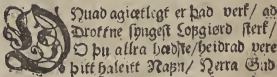 HUad agiætlegt er þad verk/ ad
Drottne syngest Lofgiørd sterk/
O þu allra hædste/ heidrad vere
þitt haleitt Nafn/ Herra Gud